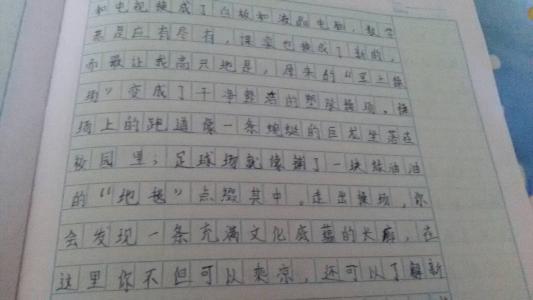 和电视换成了白板和液晶电脑，教学
器是应有尽有，课桌也换成了新的，
而最让我高兴地是，原来的“黑土操
场”变成了干净整洁的塑胶操场，操
场上的跑道像一条蜿蜒的巨龙坐落在
校园里；足球场就像铺了一块绿油油
的“地毯”点缀其中，走出操场，你
会发现一条充满文化底蕴的长廊，在
这里你不但可以乘凉，还可以了解新